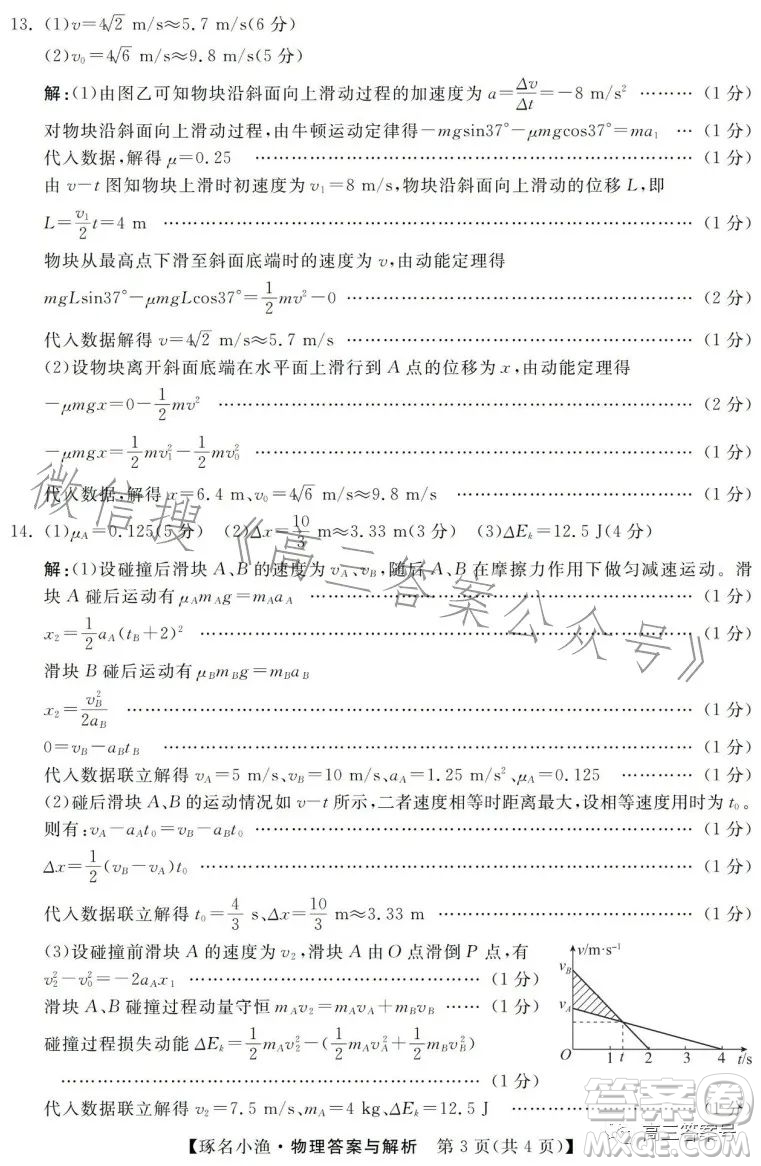 13. (1)v=4√2 m/s≈5.7 m/s(6 分)
(2)v₀=4√6 m/s≈9.8 m/s(5 分)
解:(1)由图乙可知物块沿斜面向上滑动过程的加速度为 a=Δv/Δt=-8 m/s² ……… (1 分)
对物块沿斜面向上滑动过程,由牛顿运动定律得-mgsin37°-μmgcos37°=ma₁ … (1 分)
代入数据,解得 μ=0.25 …………………………………………………… (1 分)
由 v-t 图知物块上滑时初速度为 v₁=8 m/s,物块沿斜面向上滑动的位移 L,即
L=v₁/2 t=4 m ……………………………………………………………… (1 分)
物块从最高点下滑至斜面底端时的速度为 v,由动能定理得
mgLsin37°-μmgLcos37°=1/2 mv²-0 ………………………………………… (2 分)
代入数据解得 v=4√2 m/s≈5.7 m/s ………………………………………… (1 分)
(2)设物块离开斜面底端在水平面上滑行到 A 点的位移为 x,由动能定理得
-μmgx=0-1/2 mv² ………………………………………………………… (2 分)
-μmgx=1/2 mv₁²-1/2 mv₀² …………………………………………………… (1 分)
代入数据,解得 x=6.4 m、v₀=4√6 m/s≈9.8 m/s …………………………… (2 分)
14. (1)μ_A=0.125(5 分) (2)Δx=10/3 m≈3.33 m(3 分) (3)ΔEₖ=12.5 J(4 分)
解:(1)设碰撞后滑块 A、B 的速度为 v_A、v_B,随后 A、B 在摩擦力作用下做匀减速运动。滑
块 A 碰后运动有 μ_A m_A g=m_A a_A ……………………………………… (1 分)
x₂=1/2 a_A(t_B+2)² ………………………………………………………… (1 分)
滑块 B 碰后运动有 μ_B m_B g=m_B a_B
x₂=v_B²/2a_B ……………………………………………………………… (1 分)
0=v_B-a_B t_B ……………………………………………………………… (1 分)
代入数据联立解得 v_A=5 m/s、v_B=10 m/s、a_A=1.25 m/s²、μ_A=0.125 ………… (1 分)
(2)碰后滑块 A、B 的运动情况如 v-t 所示,二者速度相等时距离最大,设相等速度用时为 t₀。
则有:v_A-a_A t₀=v_B-a_B t₀ ……………………………………………… (1 分)
Δx=1/2(v_B-v_A)t₀ ………………………………………………………… (1 分)
代入数据联立解得 t₀=4/3 s、Δx=10/3 m≈3.33 m …………………………… (1 分)
(3)设碰撞前滑块 A 的速度为 v₂,滑块 A 由 O 点滑倒 P 点,有
v₂²-v₀²=-2a_A x₁ ………………………………… (1 分)
滑块 A、B 碰撞过程动量守恒 m_A v₂=m_A v_A+m_B v_B …… (1 分)
碰撞过程损失动能 ΔEₖ=1/2 m_A v₂²-(1/2 m_A v_A²+1/2 m_B v_B²)
…………………………………………………… (1 分)
代入数据联立解得 v₂=7.5 m/s、m_A=4 kg、ΔEₖ=12.5 J ……………………… (1 分)
v/m·s⁻¹
v_B
v_A
O 1 t 2 3 4 t/s
【琢名小渔·物理答案与解析 第 3 页(共 4 页)】
微信搜《高三答案公众号》
答案圈
高三答案号